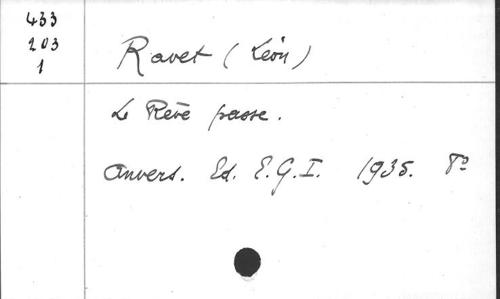 433
203
1
Ravet (Léon)
Le Rêve passe.
Anvers. Ed. E.G.I. 1935. 8°